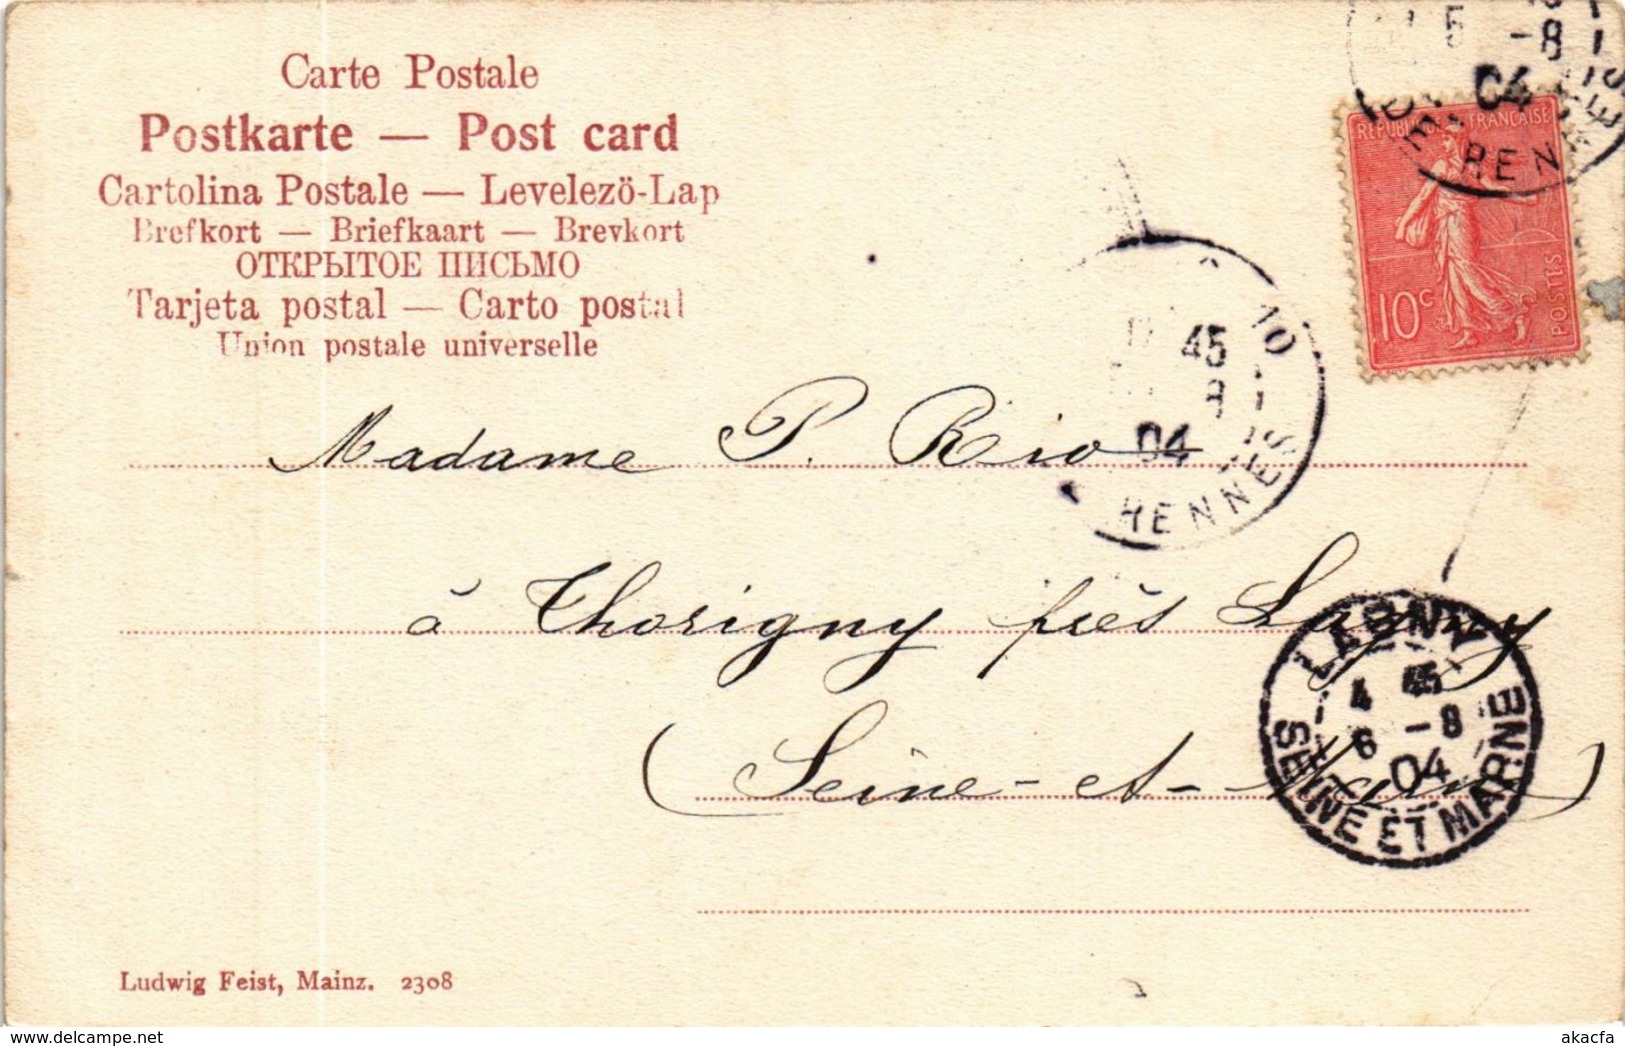 Carte Postale
Postkarte — Post card
Cartolina Postale — Levelezö-Lap
Brefkort — Briefkaart — Brevkort
ОТКРЫТОЕ ПИСЬМО
Tarjeta postal — Carto postal
Union postale universelle
5 -8
04
RENNES
REPUBLIQUE FRANÇAISE
10c
POSTES
10
45
8
04
RENNES
Madame P. Rio
à Thorigny près Lagny
(Seine-et-Marne)
LAGNY
4 45
6 -8
04
SEINE ET MARNE
Ludwig Feist, Mainz. 2308
akacfa